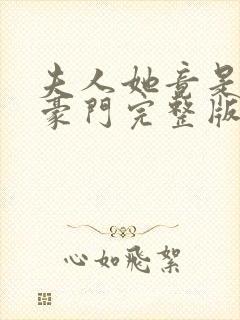 夫人她竟是
豪門完整版
心如飛絮